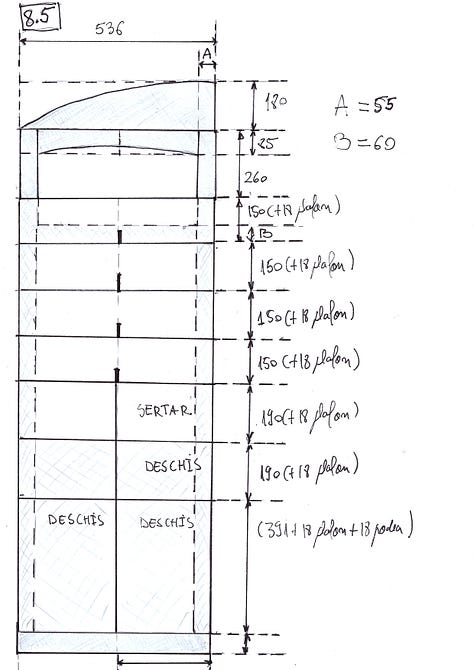 8.5
536
A
180
A = 55
25
B = 60
260
150 (+18 plafon)
B
150 (+18 plafon)
150 (+18 plafon)
150 (+18 plafon)
SERTAR
190 (+18 plafon)
DESCHIS
190 (+18 plafon)
DESCHIS
DESCHIS
(391+18 plafon+18 podea)